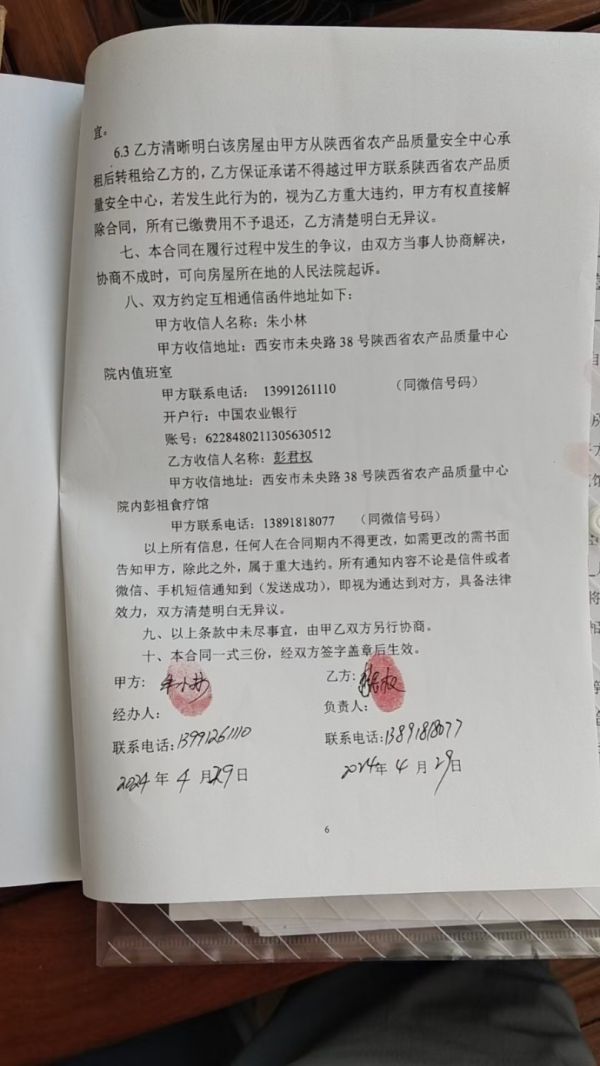 宜。
6.3 乙方清晰明白该房屋由甲方从陕西省农产品质量安全中心承
租后转租给乙方的，乙方保证承诺不得越过甲方联系陕西省农产品质
量安全中心，若发生此行为的，视为乙方重大违约，甲方有权直接解
除合同，所有已缴费用不予退还，乙方清楚明白无异议。
七、本合同在履行过程中发生的争议，由双方当事人协商解决，
协商不成时，可向房屋所在地的人民法院起诉。
八、双方约定互相通信函件地址如下：
甲方收信人名称：朱小林
甲方收信地址：西安市未央路 38 号陕西省农产品质量中心
院内值班室
甲方联系电话： 13991261110 （同微信号码）
开户行：中国农业银行
账号：6228480211305630512
乙方收信人名称：彭君权
甲方收信地址：西安市未央路 38 号陕西省农产品质量中心
院内彭祖食疗馆
甲方联系电话：13891818077 （同微信号码）
以上所有信息，任何人在合同期内不得更改，如需更改的需书面
告知甲方，除此之外，属于重大违约。所有通知内容不论是信件或者
微信、手机短信通知到（发送成功），即视为通达到对方，具备法律
效力，双方清楚明白无异议。
九、以上条款中未尽事宜，由甲乙双方另行协商。
十、本合同一式三份，经双方签字盖章后生效。
甲方：朱小林 乙方：
经办人： 负责人：
联系电话：13991261110 联系电话：13891818077
2024 年 4 月 29 日 2024 年 4 月 29 日
6